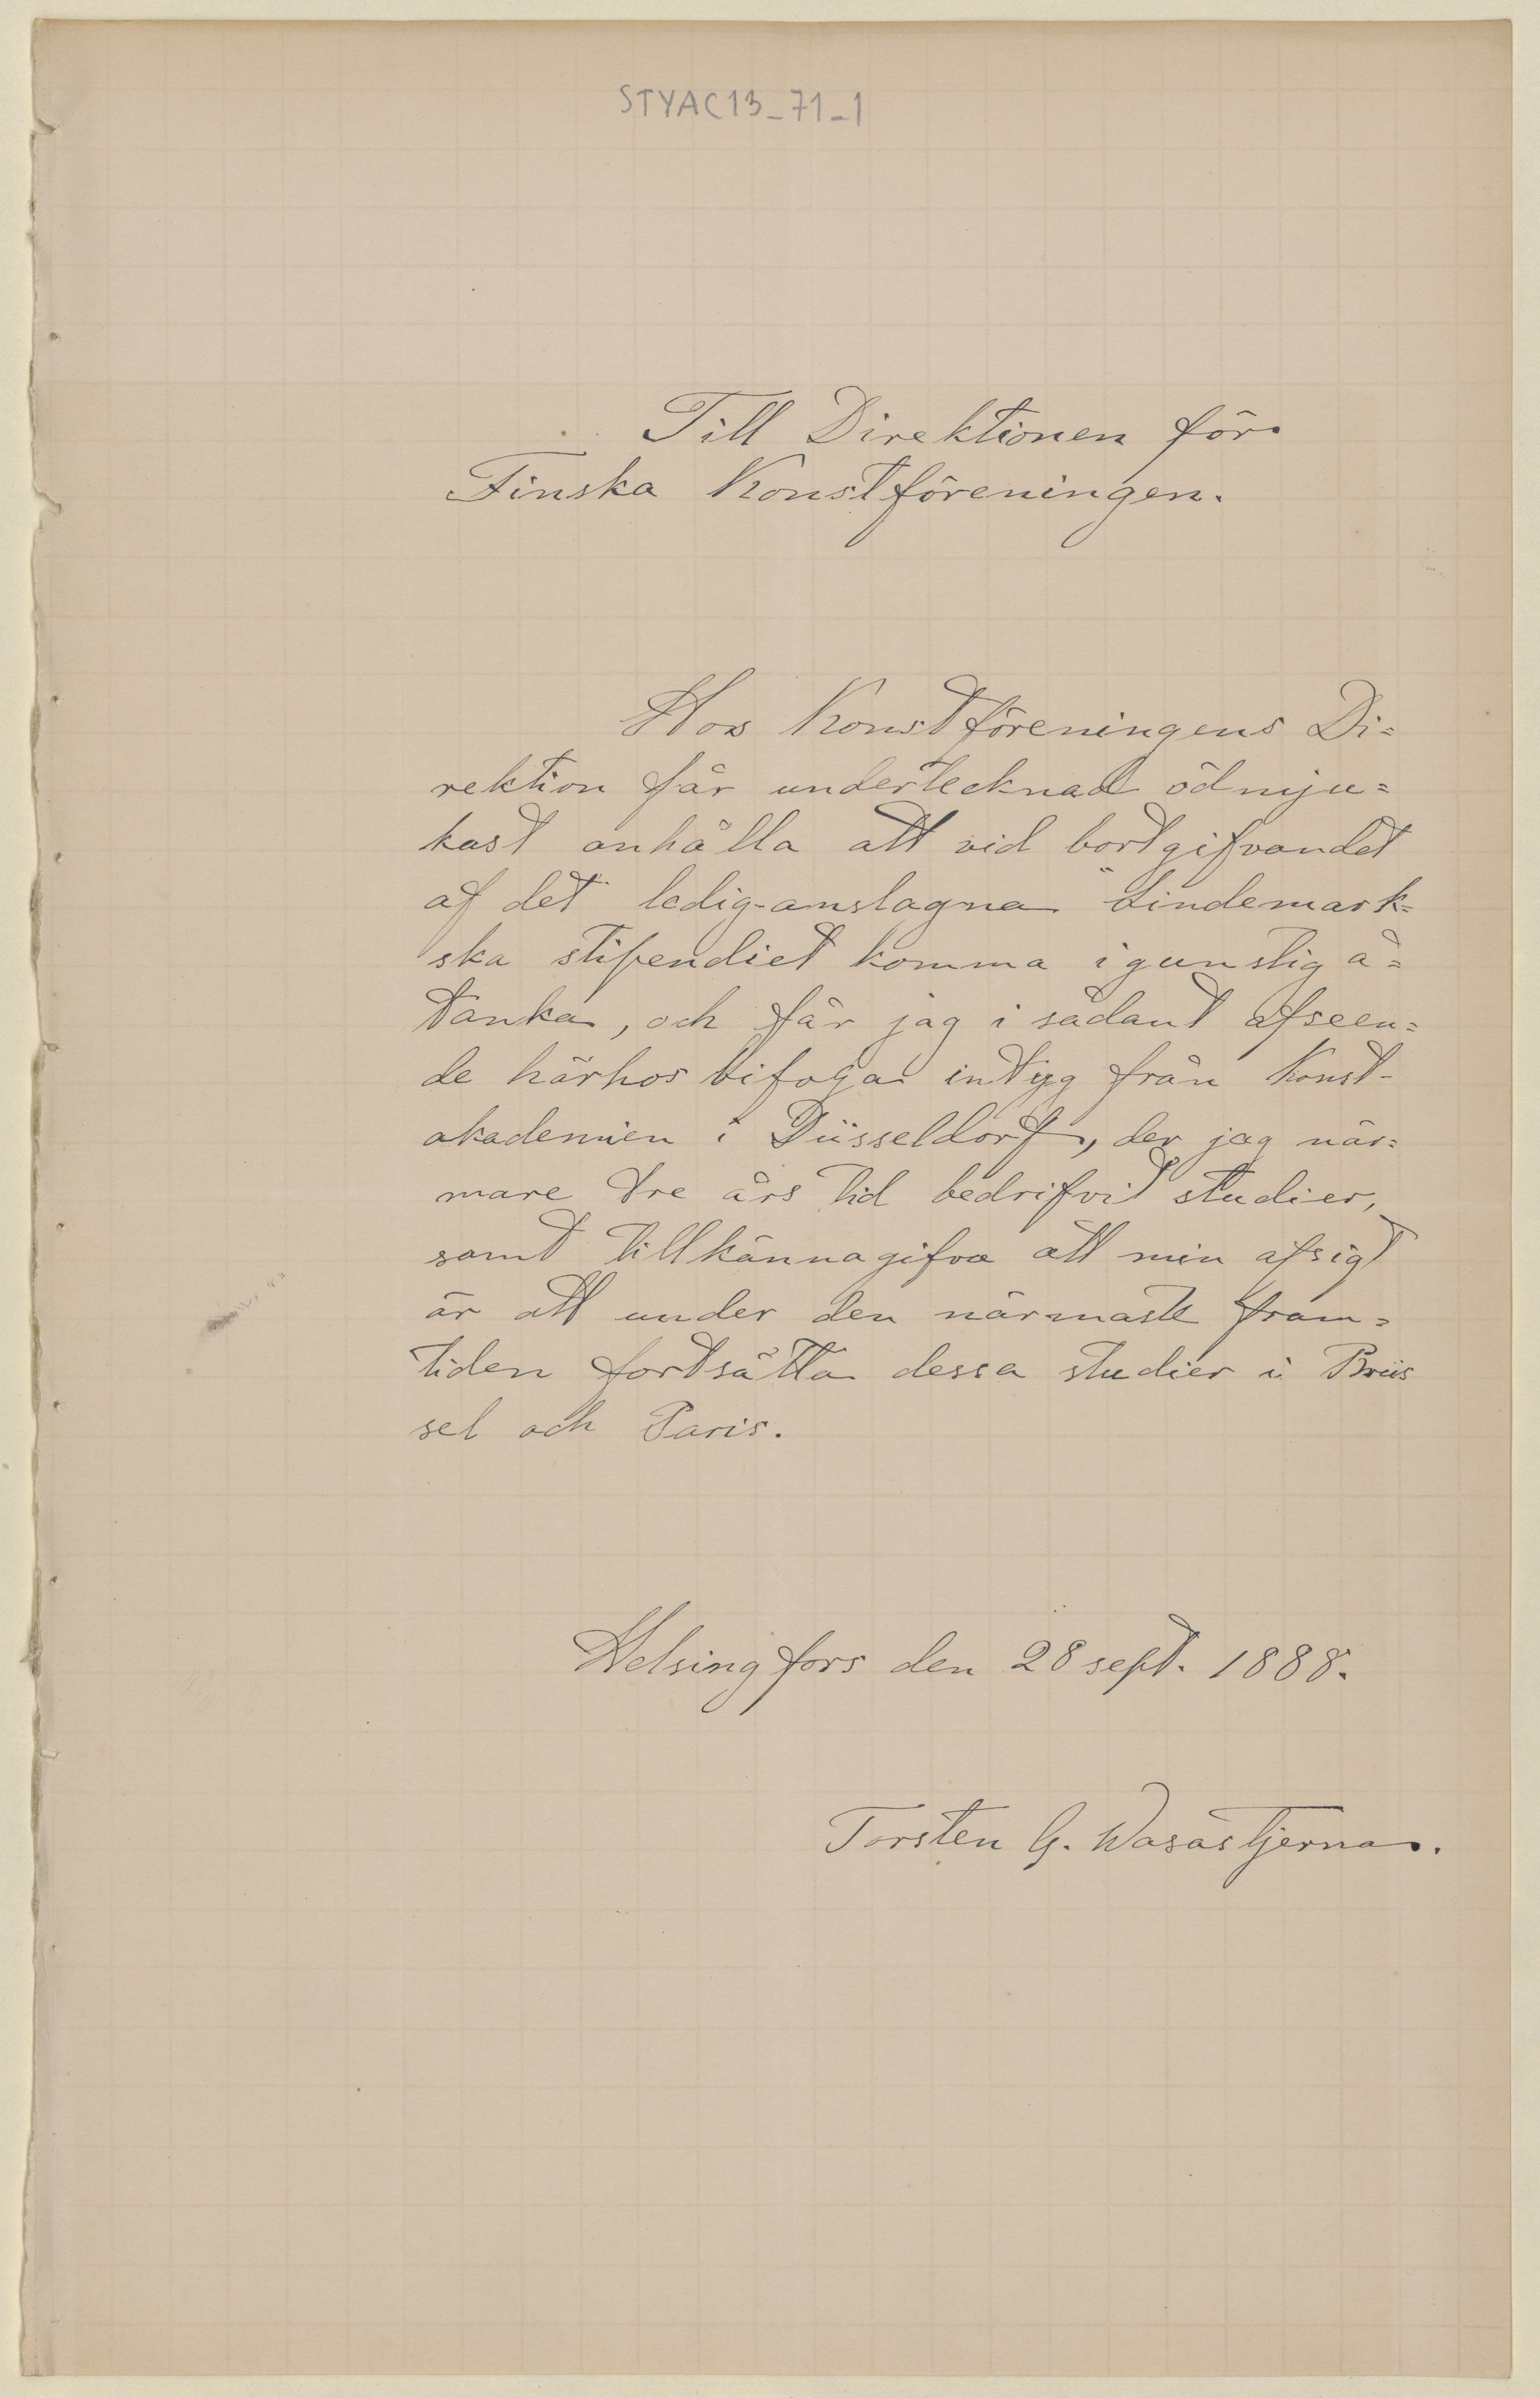 STYAC13_71_1
Till Direktionen för
Finska Konstföreningen.
Hos Konstföreningens Di=
rektion får undertecknad ödmju=
kast anhålla att vid bortgifvandet
af det ledig-anslagna Lindemark=
ska stipendiet komma i gunstig å=
tanka, och får jag i sådant afseen=
de härhos bifoga intyg från Konst-
akademien i Düsseldorf, der jag när=
mare tre års tid bedrifvit studier,
samt tillkännagifva att min afsigt
är att under den närmaste fram=
tiden fortsätta dessa studier i Brüs
sel och Paris.
Helsingfors den 28 sept. 1888.
Torsten G. Wasastjerna.